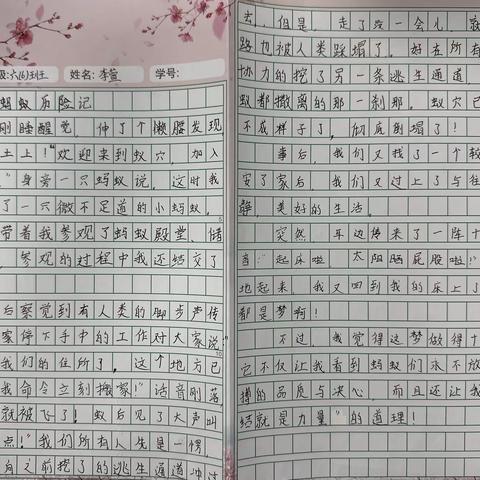 级:六(6)班 姓名: 李萱 学号:
蚂蚁历险记
刚睡醒觉，伸了个懒腰发现
土上！"欢迎来到蚁穴，加入
"身旁一只蚂蚁说，这时我
了一只微不足道的小蚂蚁，
带着我参观了蚂蚁殿堂、储
，参观的过程中我还结交了
后察觉到有人类的脚步声传
家停下手中的工作对大家说：
我们的住所了，这个地方已
我命令立刻搬家！"话音刚落
就被飞了！蚁后见了大声叫
点！"我们所有人先是一愣，
向之前挖了的逃生通道冲过
去，但是，走了没一会儿，就
路也被人类踩塌了。好在所有
协力的挖了另一条逃生通道，
蚁都撤离的那一刹那，蚁穴已
不成样子了，彻底倒塌了！
事后，我们又找了一个较
安了家后，我们又过上了与往
静，美好的生活。
突然，耳边传来了一阵十
音："起床啦，太阳晒屁股啦！"
地起来，我又回到我的床上了
都是梦啊！
不过，我觉得这梦做得十
它不仅让我看到蚂蚁们永不放
搏的品质与决心，而且还让我
结就是力量"的道理！